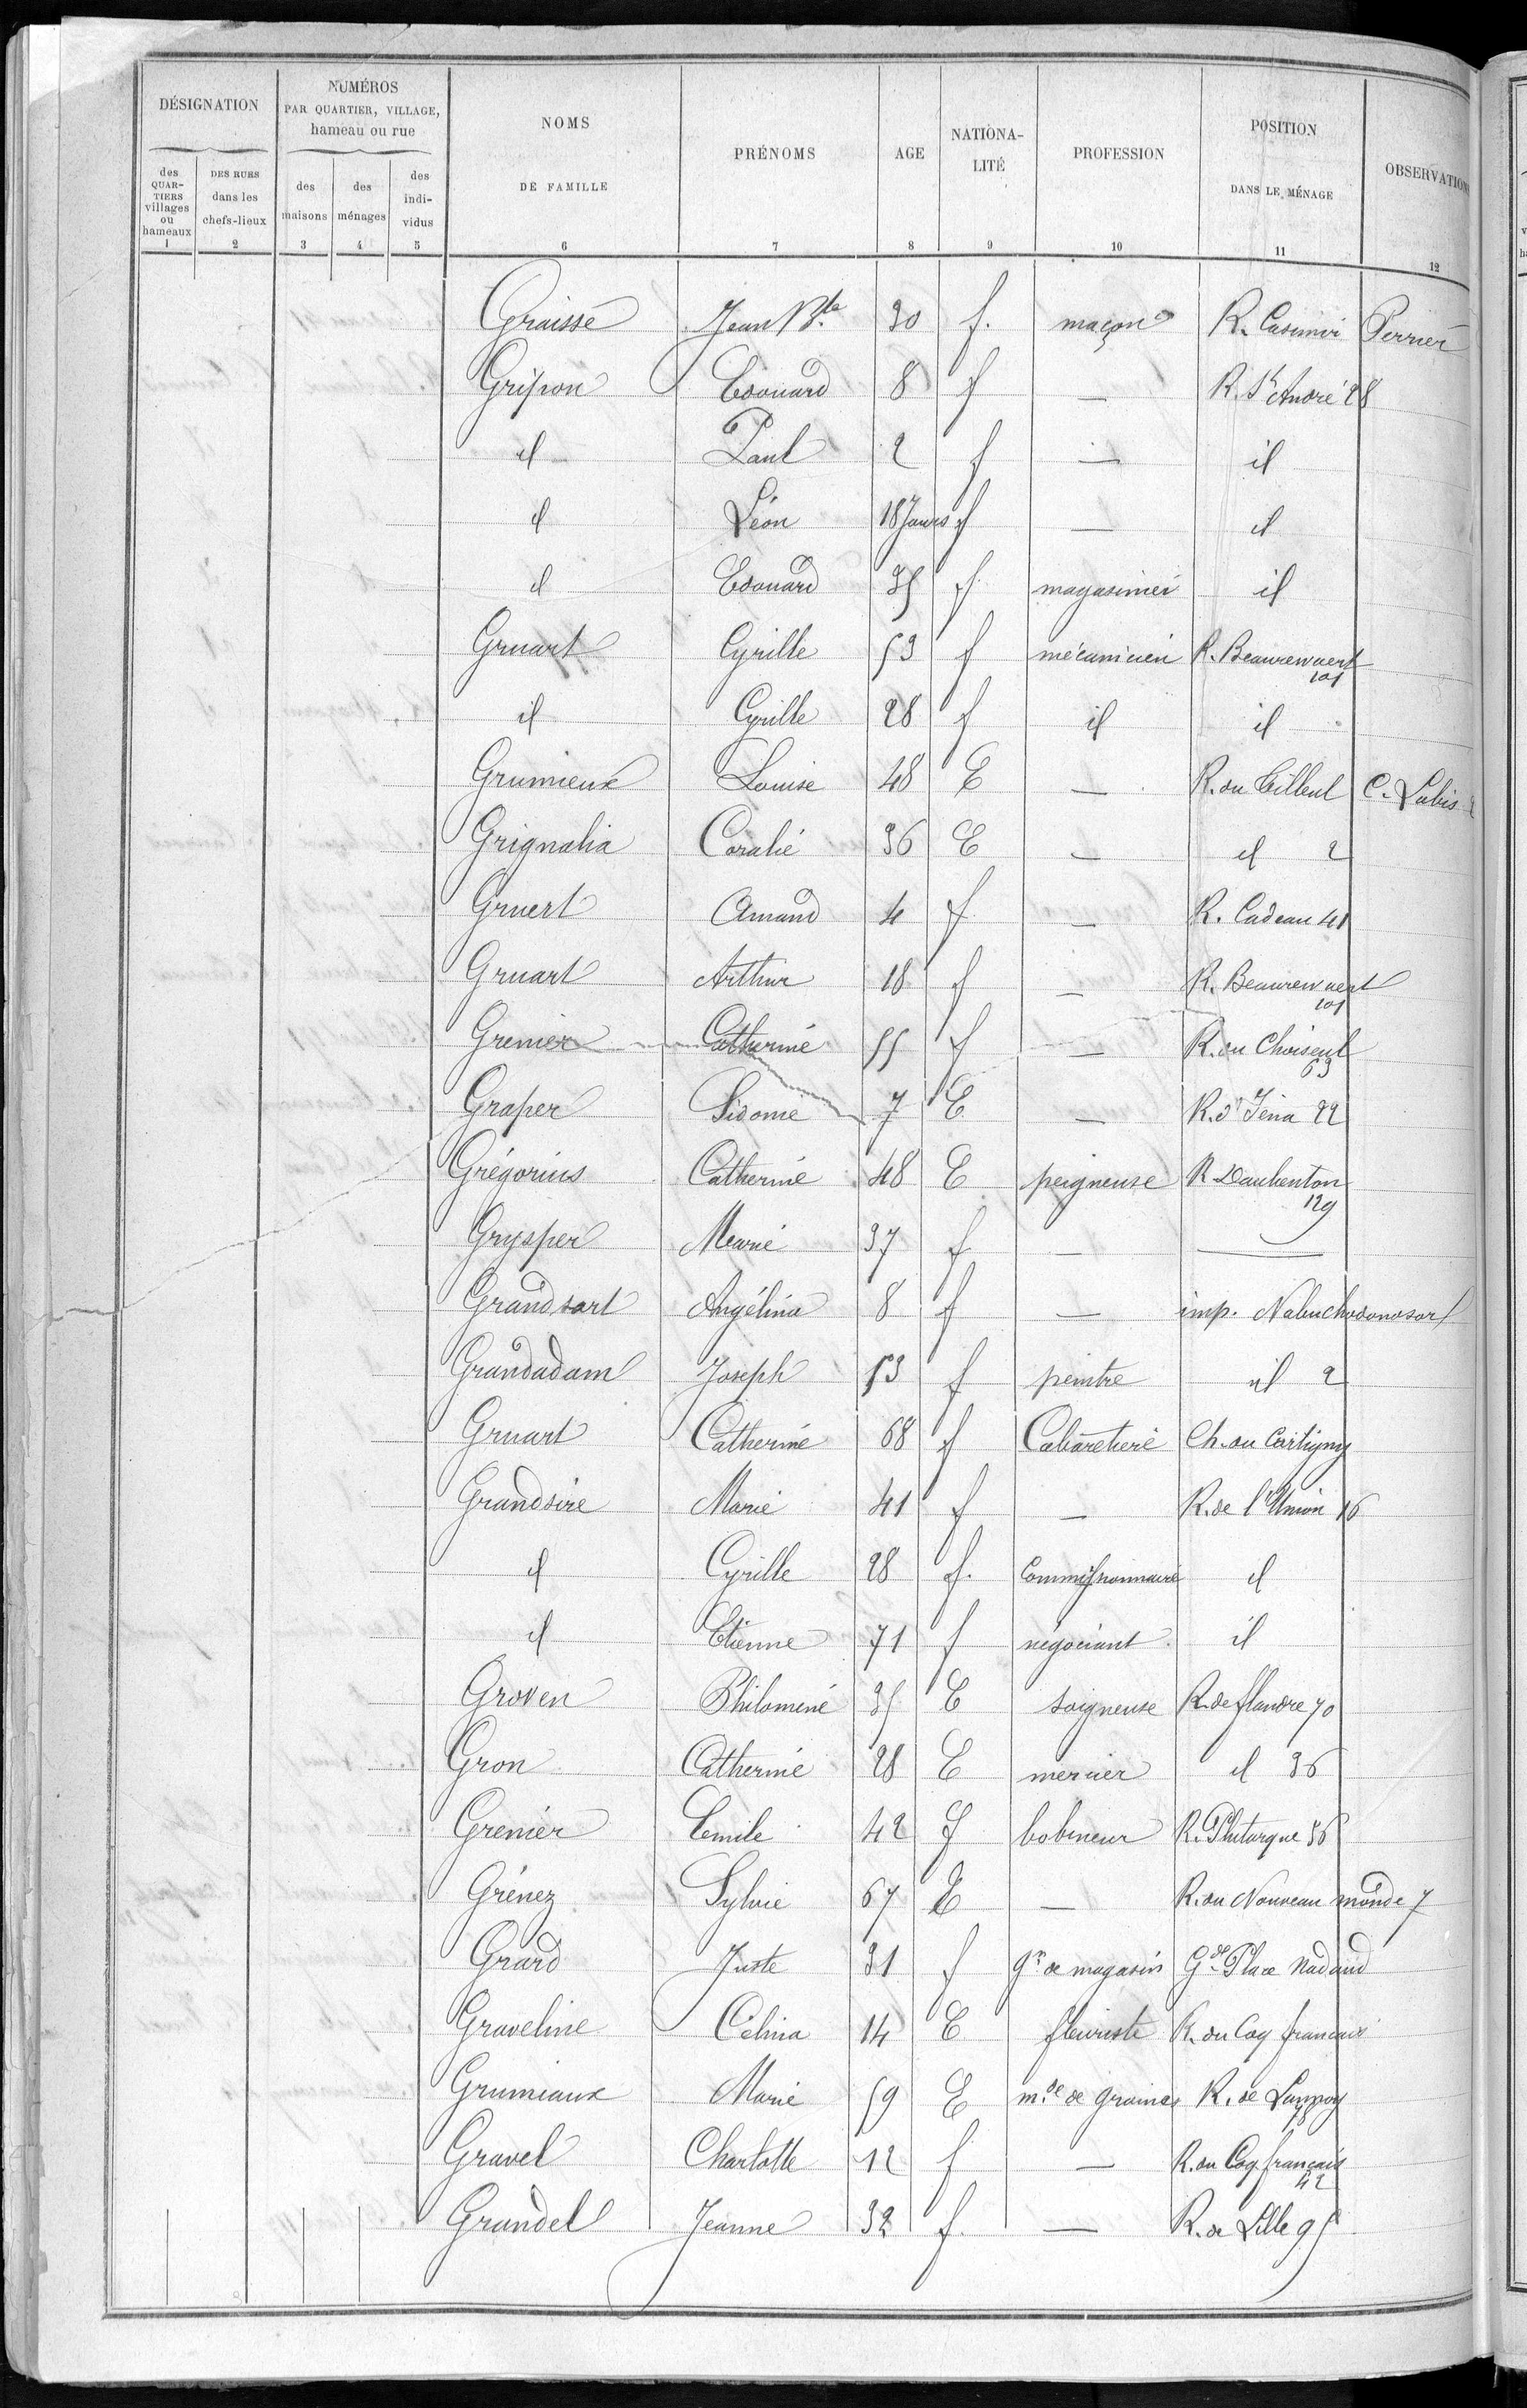 DÉSIGNATION
NUMÉROS
PAR QUARTIER, VILLAGE,
hameau ou rue
NOMS
DE FAMILLE
PRÉNOMS
AGE
NATIONA-
LITÉ
PROFESSION
POSITION
DANS LE MÉNAGE
OBSERVATIONS
des
QUAR-
TIERS
villages
ou
hameaux
DES RUES
dans les
chefs-lieux
des
maisons
des
ménages
des
indi-
vidus
1 2 3 4 5 6 7 8 9 10 11 12
Graisse Jean Bte 30 f. maçon R. Casimir Perrier
Gripon Edouard 8 f — R. St André 28
id Paul 2 f — id
id Léon 18 Jours f — id
id Edouard 35 f magasinier id
Gruart Cyrille 53 f mécanicien R. Beaurewaert 101
id Cyrille 28 f id id
Grumieux Louise 48 E — R. du Tilleul C. Lubis
Grignalia Coralie 36 E — id 2
Gruert Amand 4 f — R. Cadeau 41
Gruart Arthur 18 f — R. Beaurewaert 101
Grenier Catherine 55 f — R. du Choiseul 63
Graper Sidonie 7 E — R. d'Iéna 22
Grégorius Catherine 48 E peigneuse R Daubenton 129
Grysper Marie 37 f — —
Grandsart Angélina 8 f — imp. Nabuchodonosor
Grandadam Joseph 53 f peintre id 2
Gruart Catherine 68 f Cabaretière Ch. du Cartigny
Grandsire Marie 41 f — R. de l'Union 16
id Cyrille 28 f. Commissionnaire id
id Etienne 71 f négociant id
Groven Philomène 35 E soigneuse R. de flandre 70
Gron Catherine 28 E mercier id 36
Grenier Emile 42 f bobineur R. Plutarque 56
Grénez Sylvie 67 E — R. du Nouveau monde 7
Grard Juste 31 f gn de magasin Gde Place Nadaud
Graveline Célina 14 E fleuriste R. du Coq français
Grumiaux Marie 59 E mde de graines R. de Lannoy
Gravel Charlotte 12 f — R. du Coq français 42
Grandel Jeanne 32 f. — R. de Lille 95